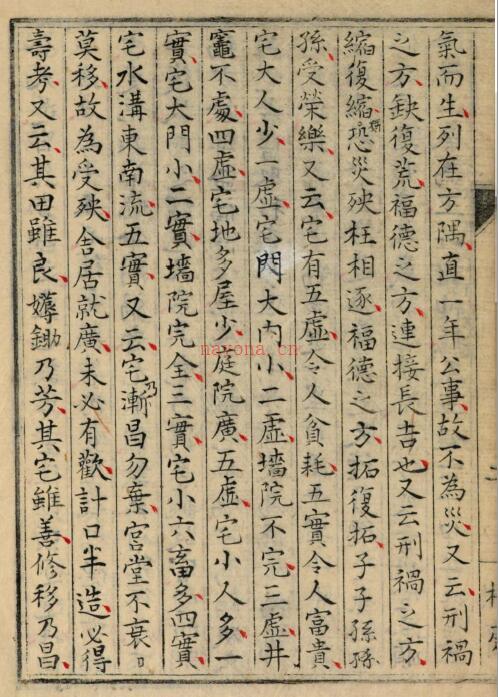 氣而生列在方隅直一年公事故不為災又云刑禍
之方缺復荒福德之方連接長吉也又云刑禍之方
縮復縮恐災殃枉相逐福德之方拓復拓子子孫孫
孫受榮樂又云宅有五虛令人貧耗五實令人富貴
宅大人少一虛宅門大內小二虛墻院不完三虛井
竈不處四虛宅地多屋少庭院廣五虛宅小人多一
實宅大門小二實墻院完全三實宅小六畜多四實
宅水溝東南流五實又云宅乃漸昌勿棄宮堂不衰
莫移故為受殃舍居就廣未必有歡計口半造必得
壽考又云其田雖良薅鋤乃芳其宅雖善修移乃昌
nayona.cn